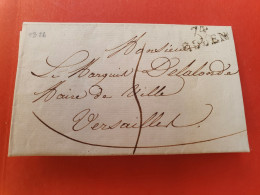 1818
74
ROUEN
Monsieur
Le Marquis Delalonde
Maire de Ville
Versailles